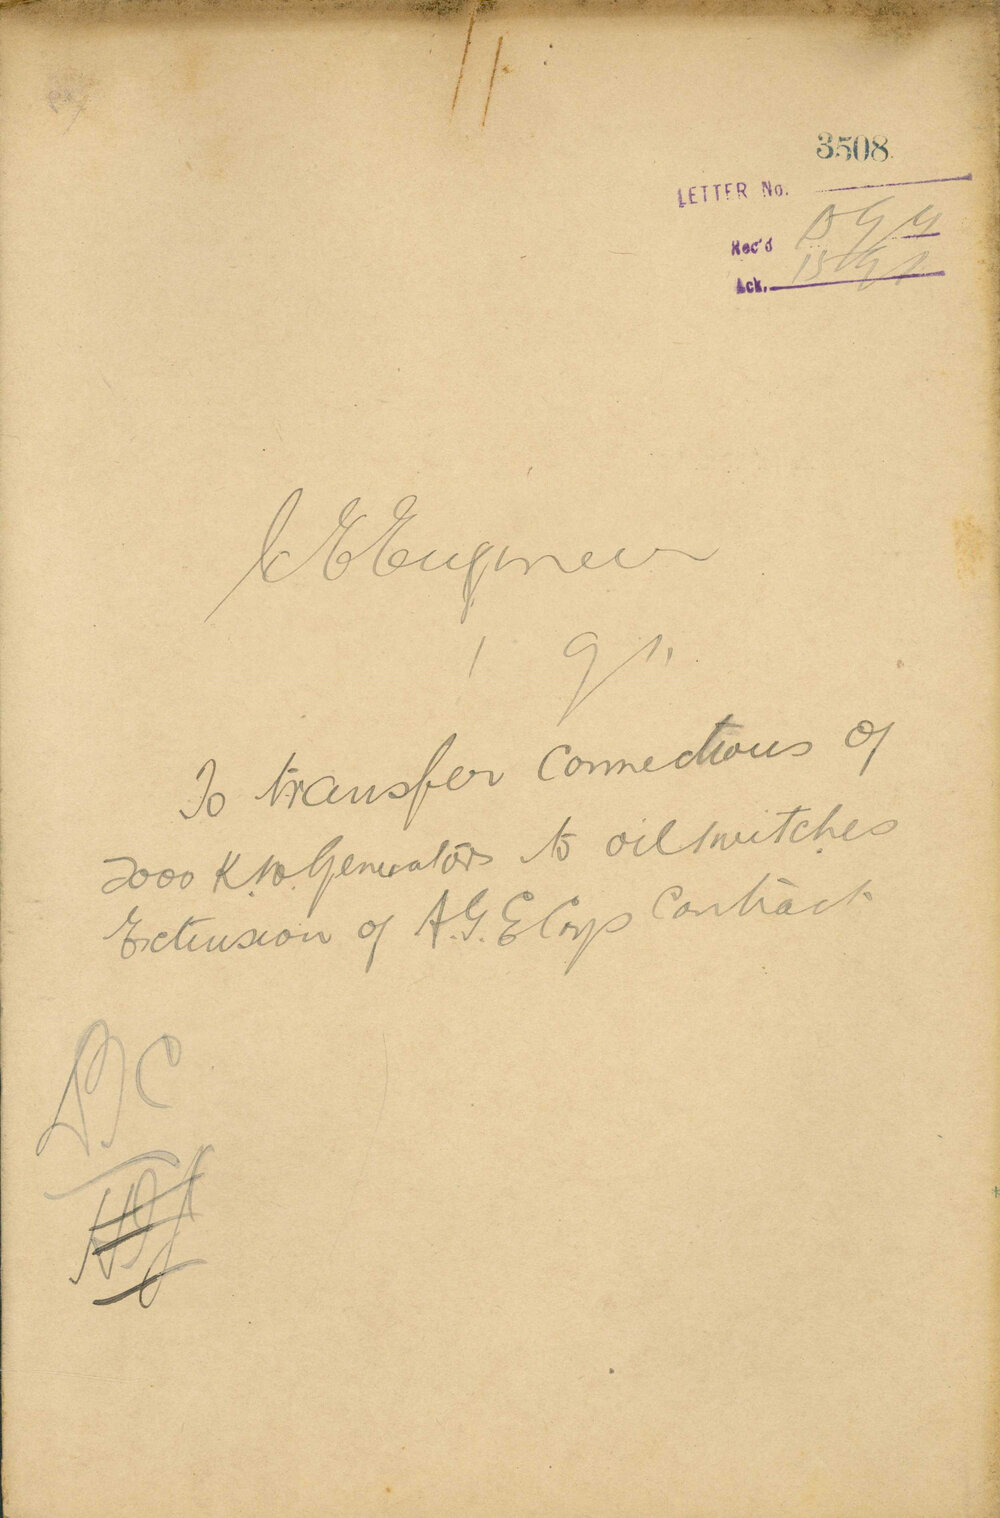 3508
LETTER No.
Rec'd
Ack. 15/9/
C E Engineer
To transfer connections of
2000 K.W. Generators to oil switches
Extension of A.G.E Coys Contract